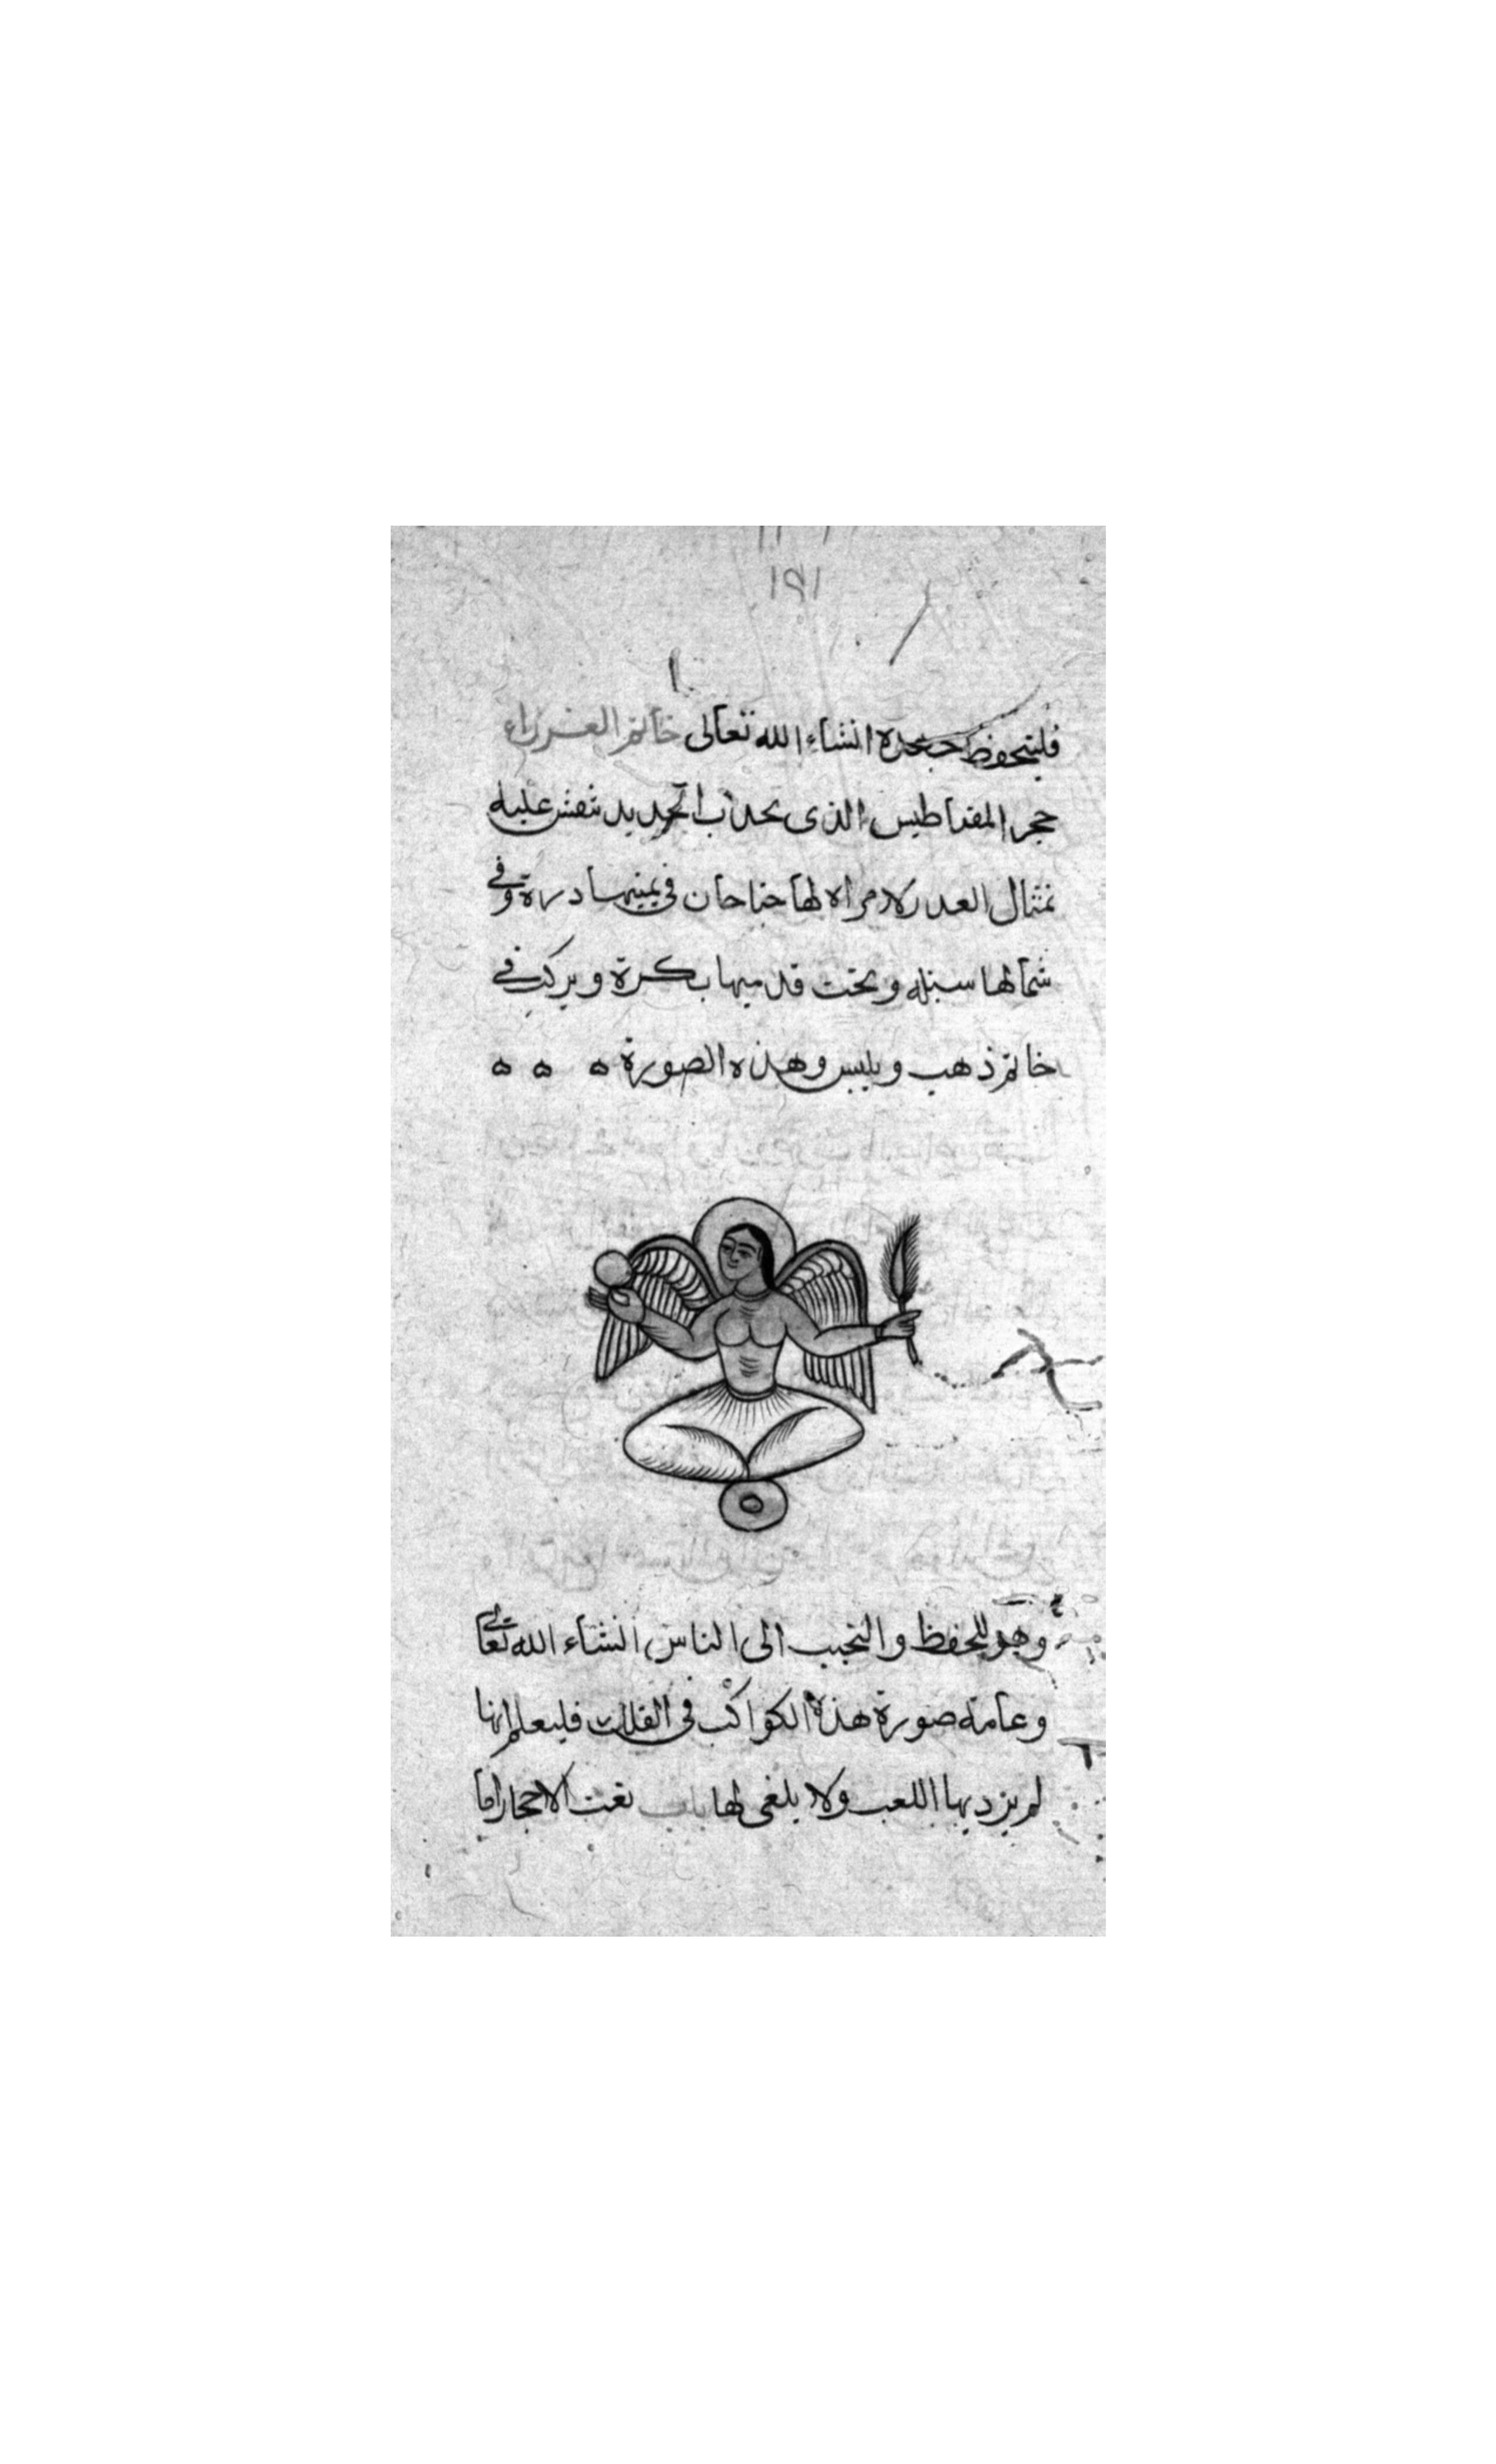 ١٩١
فليتحفظ جهده انشاء الله تعالى خاتم العذراء
حجر المقناطيس الذى يحذب الحديد ينقش عليه
تمثال العدرى لامراه لها جناحان فى يمينها درة وفي
شمالها سنبله وتحت قدميها بكرة ويركب في
خاتم ذهب ويلبس وهذه الصورة ه ه ه
وهو للحفظ والتحبب الى الناس انشاء الله تعالى
وعامة صورة هذه الكواكب فى الفلك فليعلم انها
لم يزد بها اللعب ولا يلغى لها نعت الاحجار اما